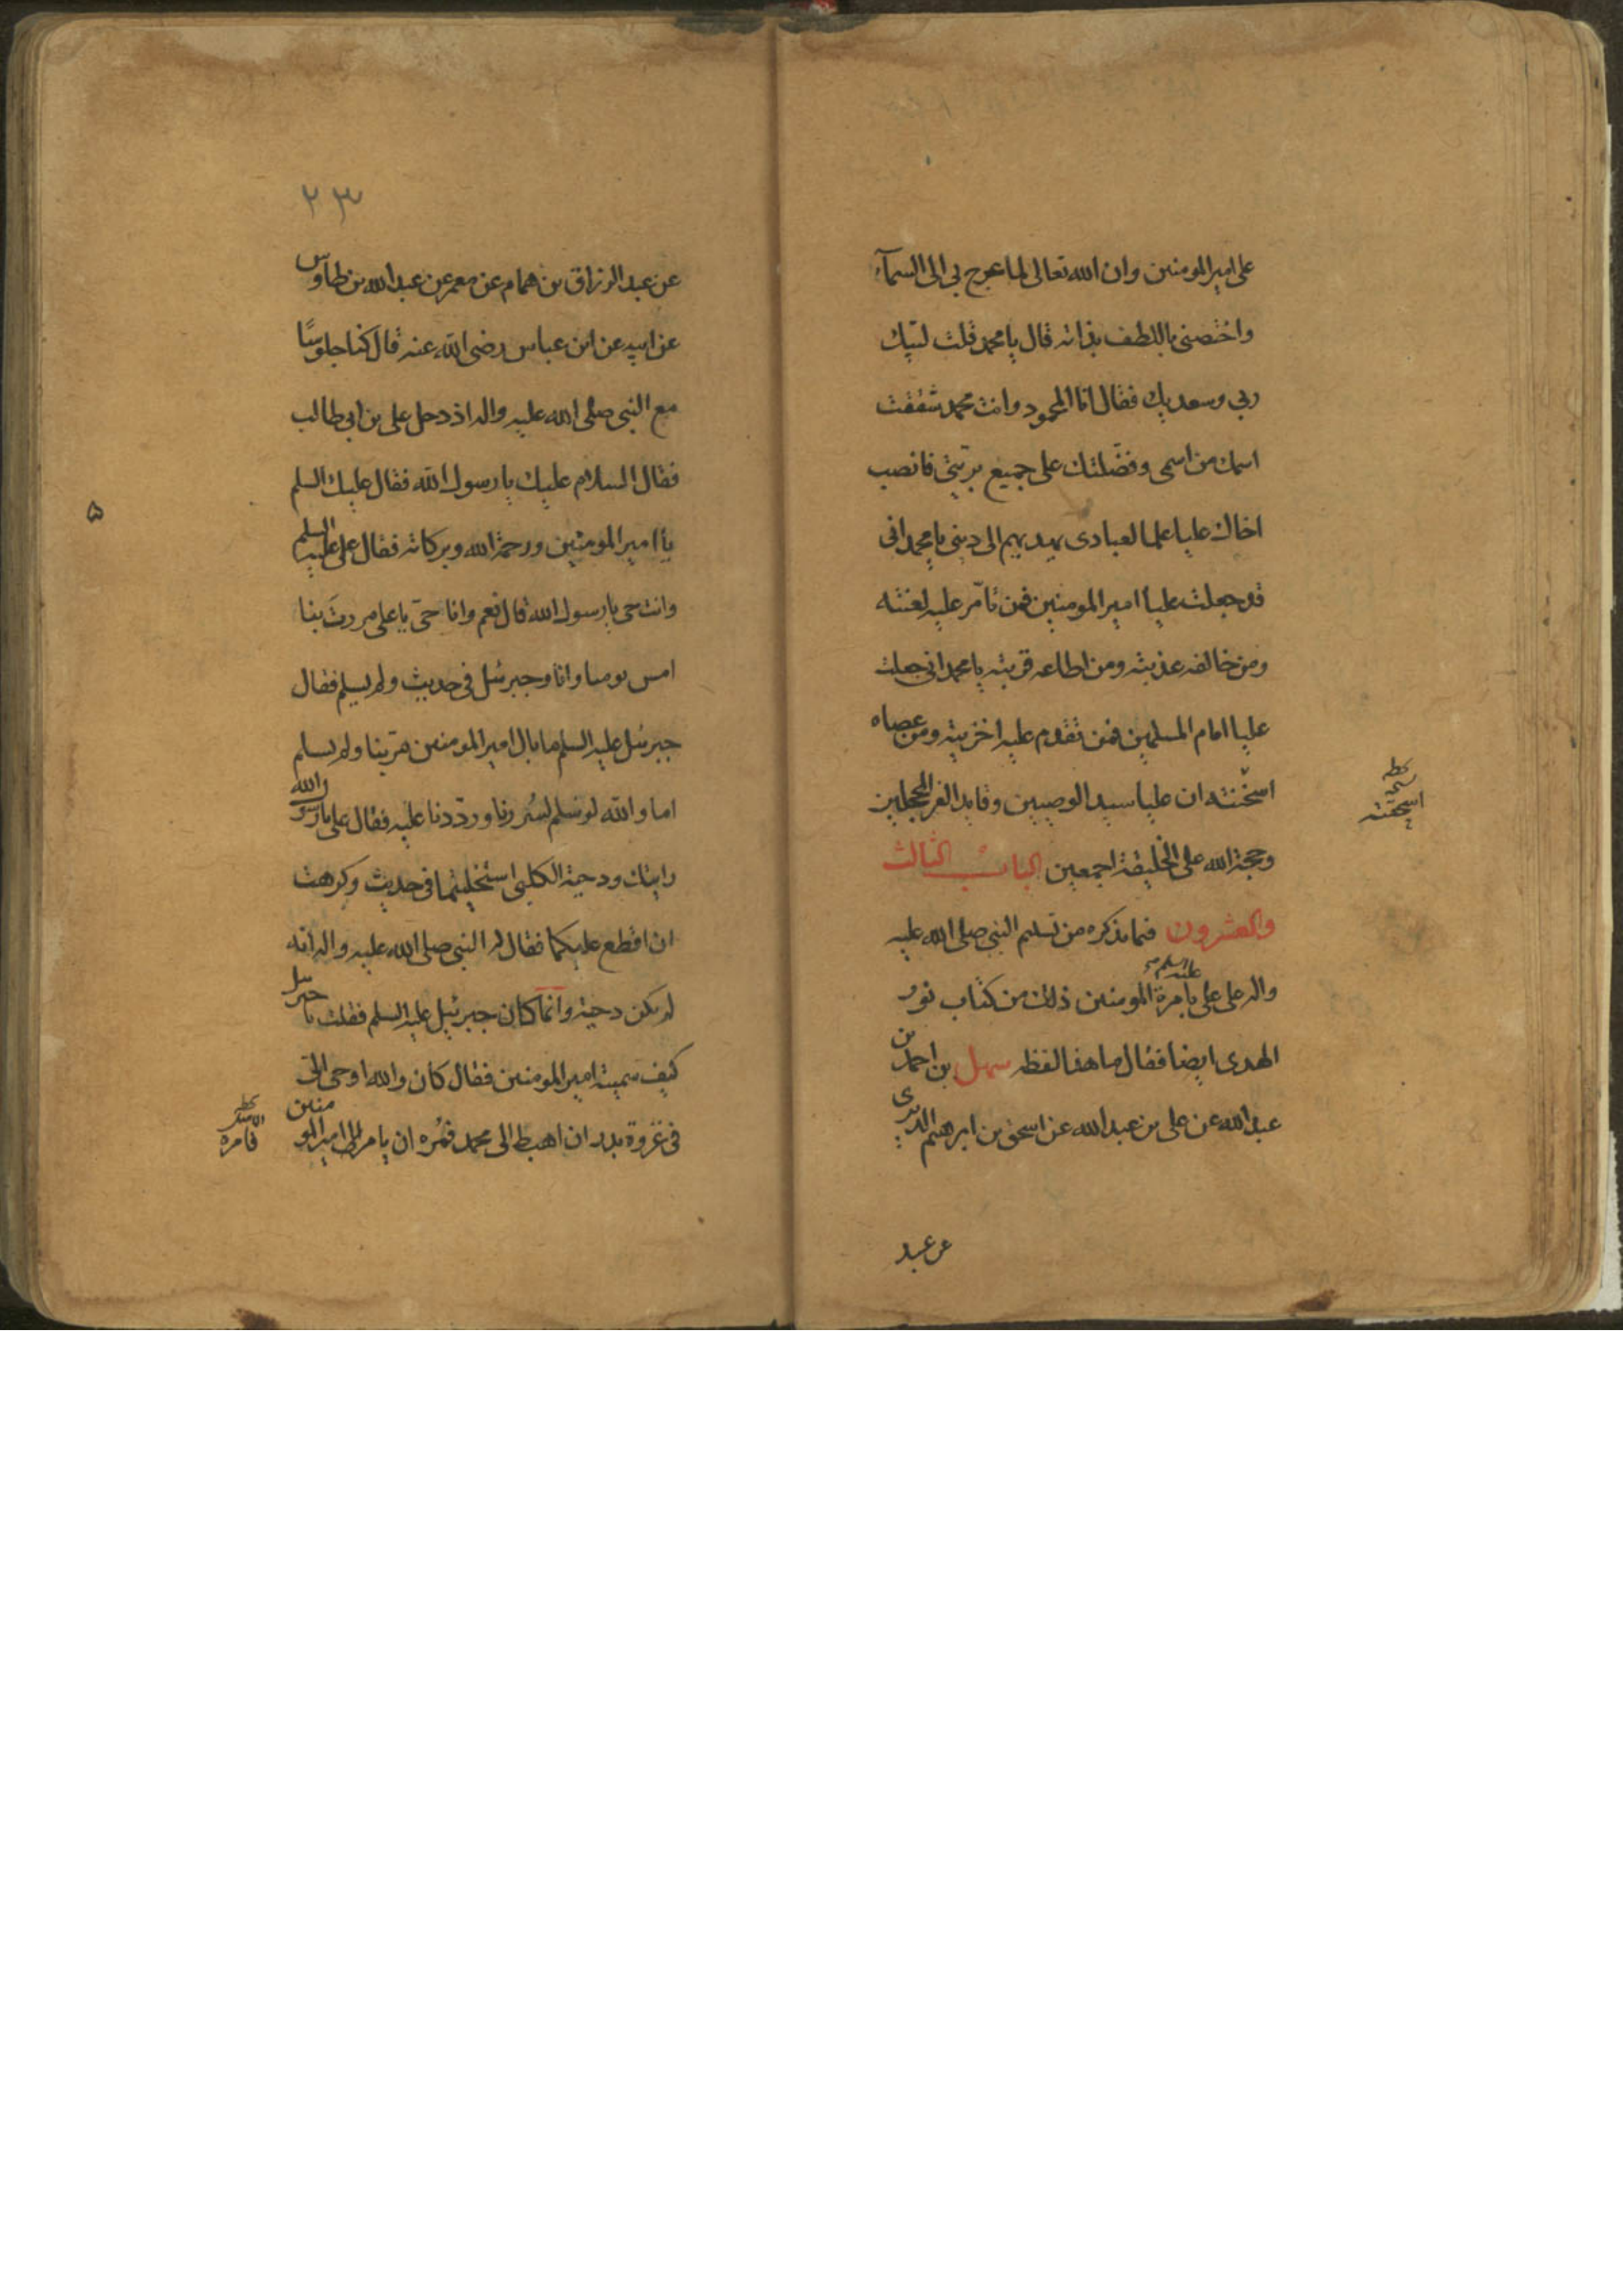 على امير المومنين وان الله تعالى لما عرج بي الى السمآء
واختصنى باللطف بذاته قال يا محمد قلت لبيك
ربي وسعديك فقال انا المحمود وانت محمد شققت
اسمك من اسمى وفضّلتك على جميع بريّتي فانصب
اخاك عليا علما لعبادى يهديهم الى دينى يا محمد انى
قد جعلت عليا امير المومنين فمن تامّر عليه لعنته
ومن خالفه عذبته ومن اطاعه قربته يا محمد انى جعلت
عليا امام المسلمين فمن تقدم عليه اخزيته ومن عصاه
اسخنته ان عليا سيد الوصيين وقايد الغر المحجلين
اسحقته
وحجة الله على الخليقة اجمعين الباب الثالث
والعشرون فيما نذكره من تسليم النبي صلى الله عليه
واله على على عليه السلم بامرة المومنين ذلك من كتاب نور
الهدى ايضا فقال ما هذا لفظه سهل بن احمد بن
عبدالله عن على بن عبدالله عن اسحق بن ابرهيم الدبرى
عن عبد
٢٣
عن عبد الرزاق بن همام عن معمر عن عبدالله بن طاوس
عن ابيه عن ابن عباس رضى الله عنه قال كنا جلوسًا
مع النبي صلى الله عليه واله اذ دخل على بن ابى طالب
فقال السلام عليك يا رسول الله فقال عليك السلم
يا امير المومنين ورحمة الله وبركاته فقال على عليه السلم
وانت حى يا رسول الله قال نعم وانا حىّ يا على مررتَ بنا
امس يومنا وانا وجبرئيل فى حديث ولم يسلم فقال
جبرئيل عليه السلم ما بال امير المومنين مرّ بنا ولم يسلم
اما والله لو سلم لسُررنا ورددنا عليه فقال على يا رسول الله
رايتك ودحية الكلبى استخليتما فى حديث وكرهت
ان اقطع عليكما فقال له النبي صلى الله عليه واله انه
لم يكن دحية وانما كان جبرئيل عليه السلم فقلت يا جبرئيل
كيف سميته امير المومنين فقال كان والله اوحى الىّ
فى غزوة بدر ان اهبط الى محمد فمُره ان يامر امير المومنين
فامره
۵